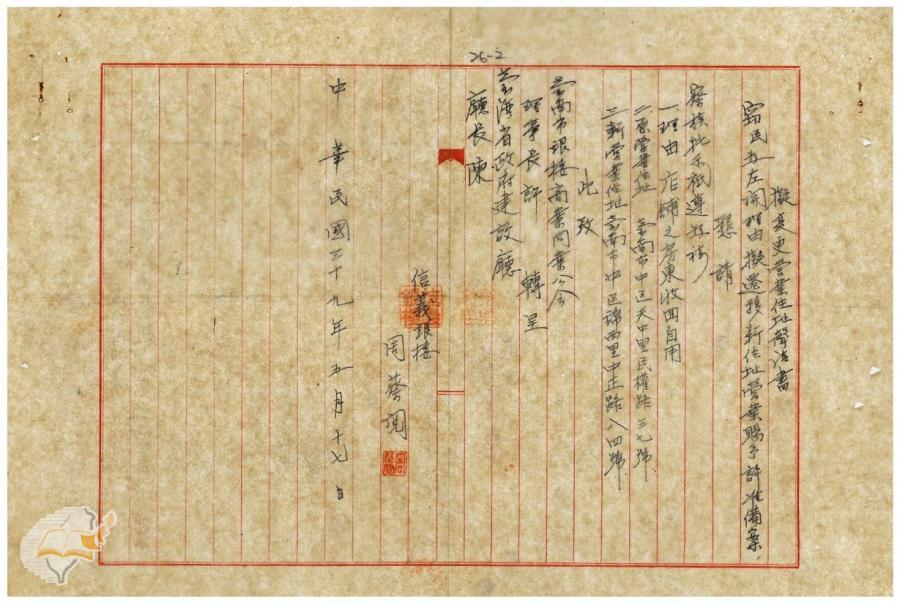 擬変更營業住址聲請書
竊民為左開理由擬遷移新住址營業賜予許准備案.
懇請
察核批示祗遵為禱
一、理由 店舖之房東收回自用
二、原營業住址 臺南市中区天中里民權路三七號.
三、新營業住址 臺南市中区錦西里中正路八四號.
此致
臺南市銀楼商業同業公会
理事長許 轉呈
臺湾省政府建設廳
廳長陳
信義銀楼
周蔡
中華民國三十九年五月十七日
26-2